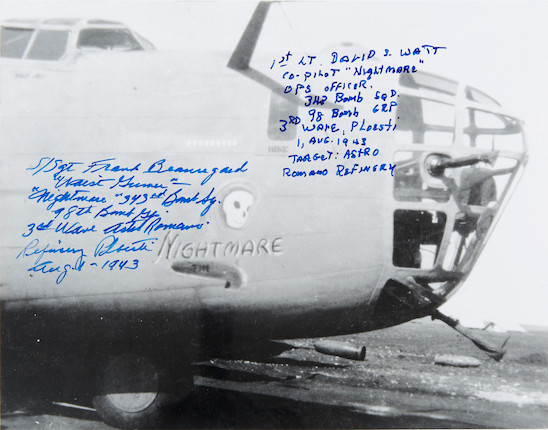 1st LT. DAVID S. WATT
CO-PILOT "NIGHTMARE"
OPS OFFICER.
343 BOMB SQD.
98 BOMB GRP
3RD WAVE, PLOESTI
1, AUG. 1943
TARGET: ASTRO
ROMANO REFINERY
S/Sgt Frank Beauregard
"Waist Gunner"
"Nightmare" 343rd Bomb Sq.
98th Bomb Gp.
3rd Wave Astro Romano
Refinery Ploesti
Aug. 1 - 1943
NIGHTMARE